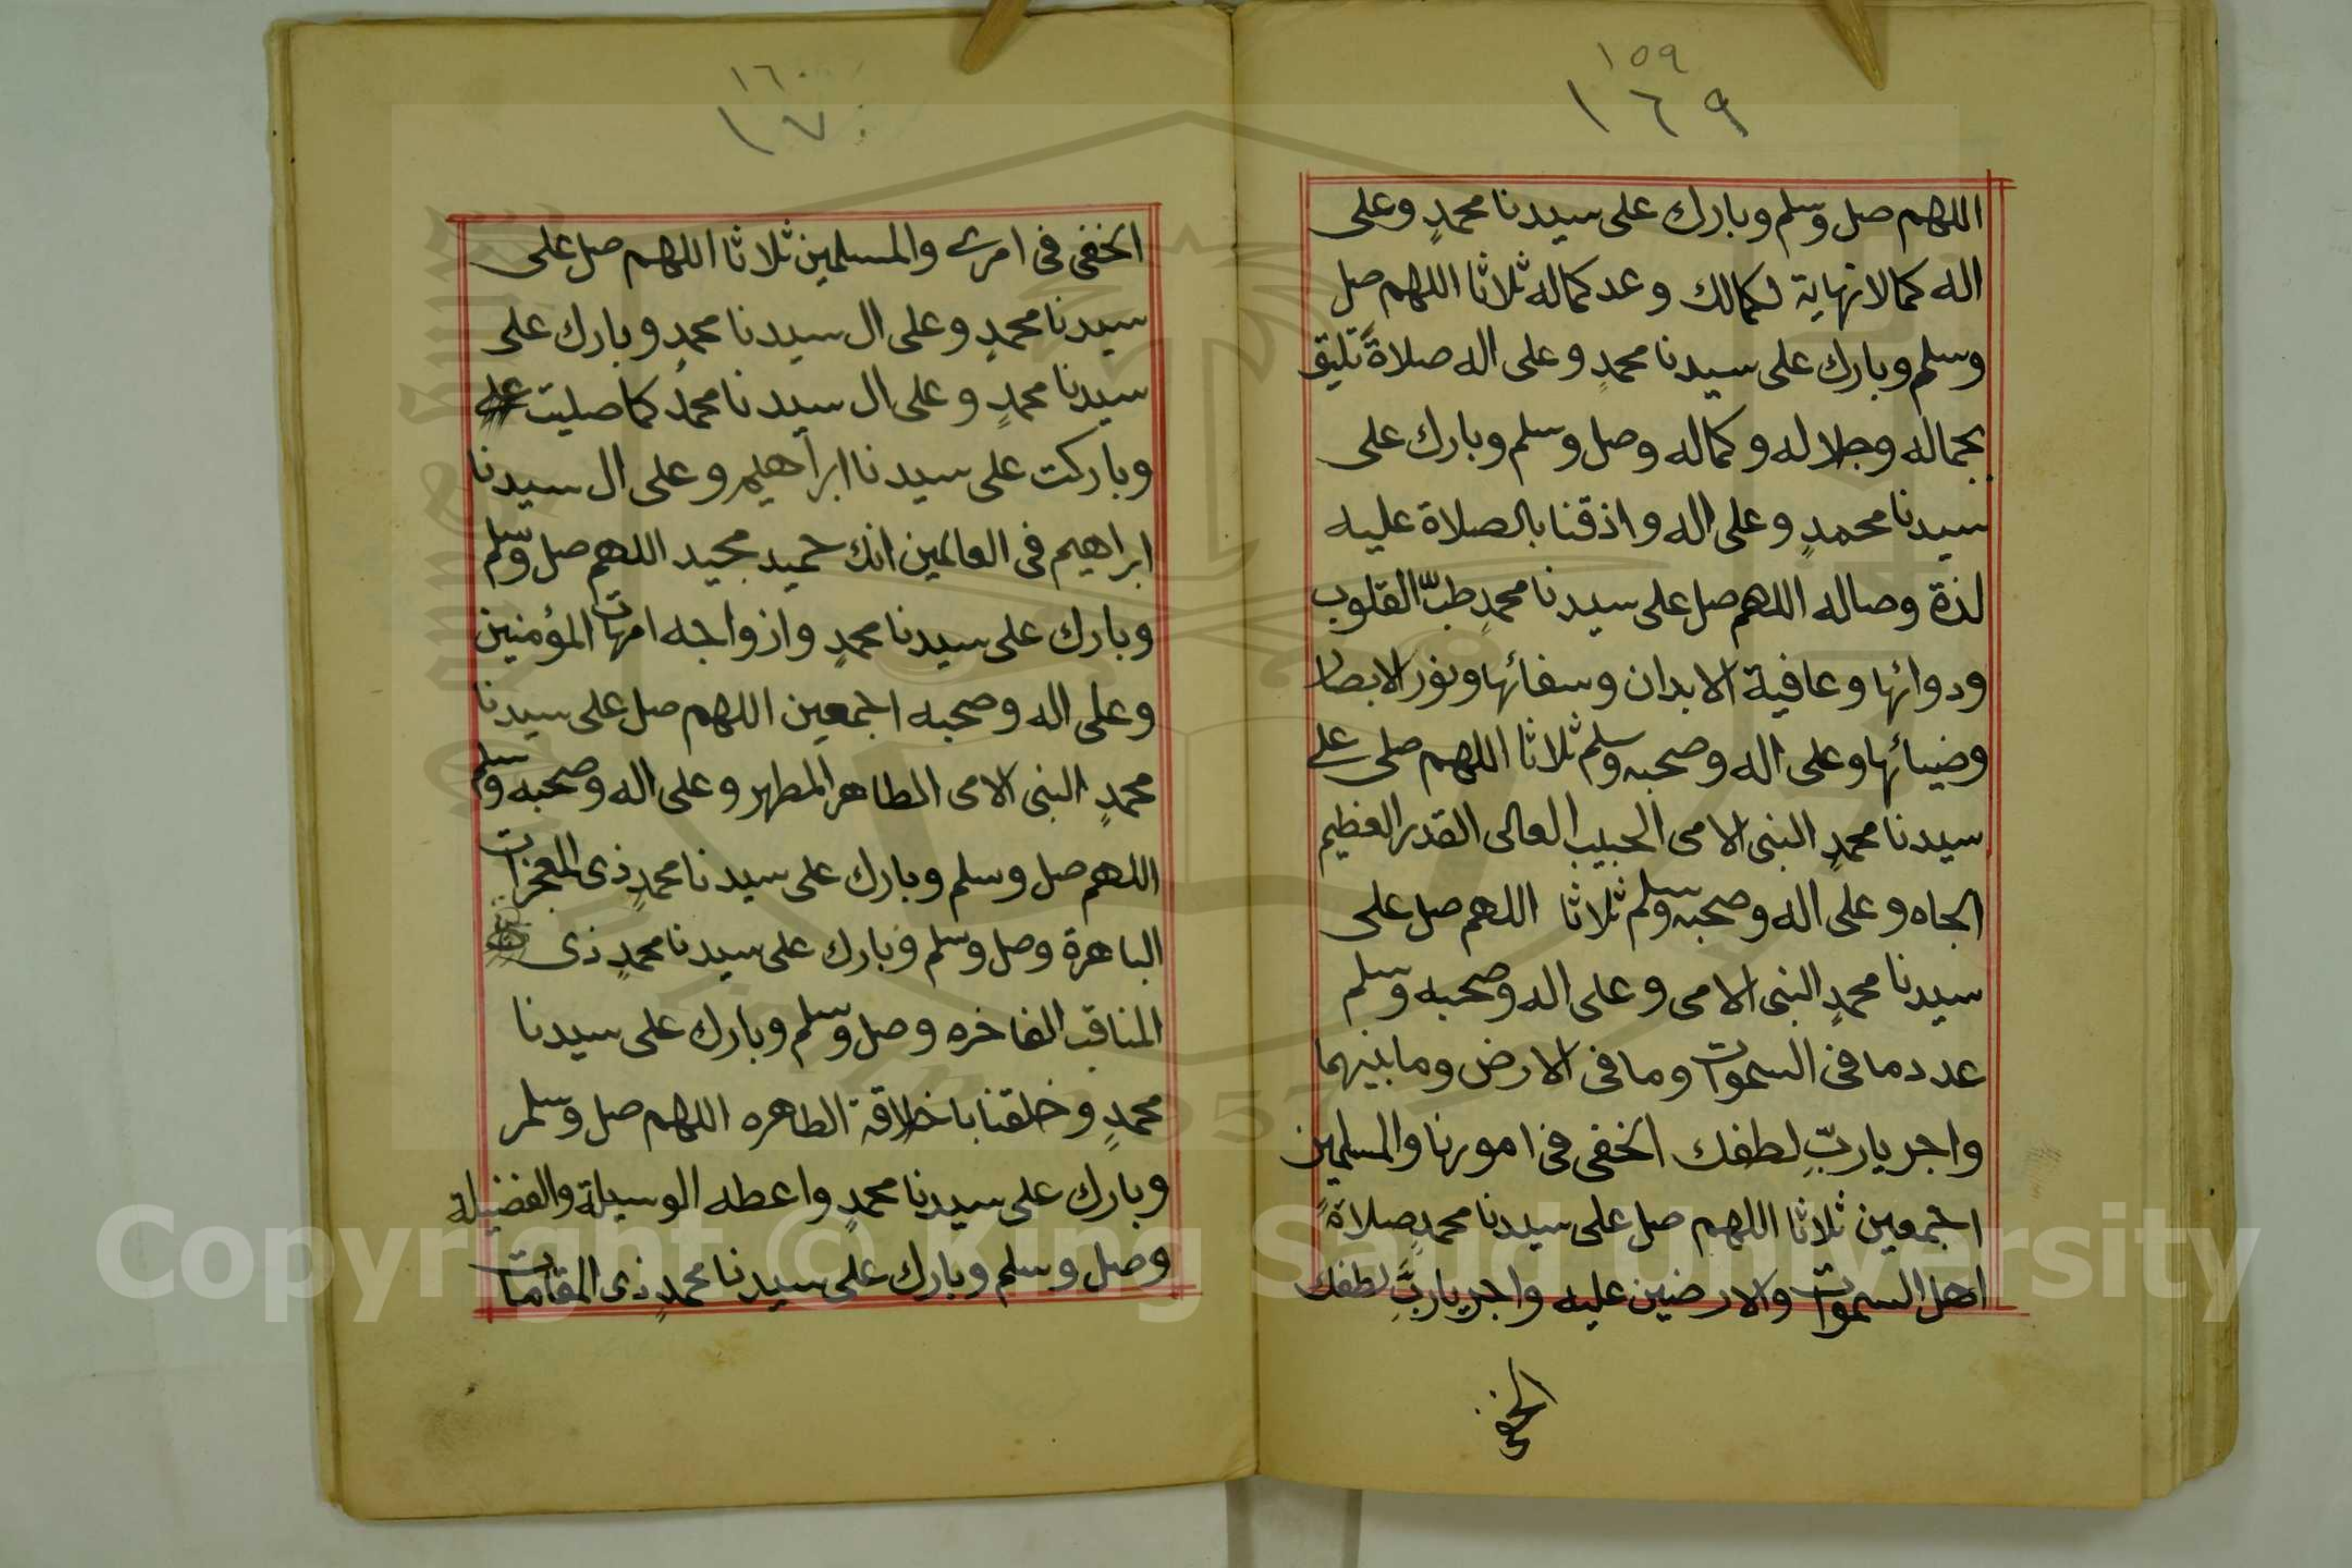 ١٥٩
١٦٩
اللهم صل وسلم وبارك على سيدنا محمدٍ وعلى
اله كما لا نهاية لكمالك وعد كماله ثلاثا اللهم صل
وسلم وبارك على سيدنا محمدٍ وعلى اله صلاةً تليق
بجماله وجلاله وكماله وصل وسلم وبارك على
سيدنا محمدٍ وعلى اله واذقنا بالصلاة عليه
لذة وصاله اللهم صل على سيدنا محمدٍ طبّ القلوب
ودوائها وعافية الابدان وسفائها ونور الابصار
وضيائها وعلى اله وصحبه وسلم ثلاثا اللهم صلى على
سيدنا محمدٍ النبى الامى الحبيب العالى القدر العظيم
الجاه وعلى اله وصحبه وسلم ثلاثا اللهم صل على
سيدنا محمدٍ النبى الامى وعلى اله وصحبه وسلم
عدد ما فى السموات وما فى الارض وما بينهما
واجر ياربّ لطفك الخفى فى امورنا والمسلمين
اجمعين ثلاثا اللهم صل على سيدنا محمدٍ صلاةً
اهل السموات والارضين عليه واجر ياربّ لطفك
الخفى
١٦٠
١٧٠
الخفى فى امرى والمسلمين ثلاثا اللهم صل على
سيدنا محمدٍ وعلى ال سيدنا محمدٍ وبارك على
سيدنا محمدٍ وعلى ال سيدنا محمدٍ كما صليت
وباركت على سيدنا ابراهيم وعلى ال سيدنا
ابراهيم فى العالمين انك حميد مجيد اللهم صل وسلم
وبارك على سيدنا محمدٍ وازواجه امهات المؤمنين
وعلى اله وصحبه اجمعين اللهم صل على سيدنا
محمدٍ النبى الامى الطاهر المطهر وعلى اله وصحبه وسلم
اللهم صل وسلم وبارك على سيدنا محمدٍ ذى المعجزات
الباهرة وصل وسلم وبارك على سيدنا محمدٍ ذى
المناقب الفاخره وصل وسلم وبارك على سيدنا
محمدٍ وخلقنا باخلاقه الطاهره اللهم صل وسلم
وبارك على سيدنا محمدٍ واعطه الوسيلة والفضيلة
وصل وسلم وبارك على سيدنا محمدٍ ذى المقامات
Copyright © King Saud University